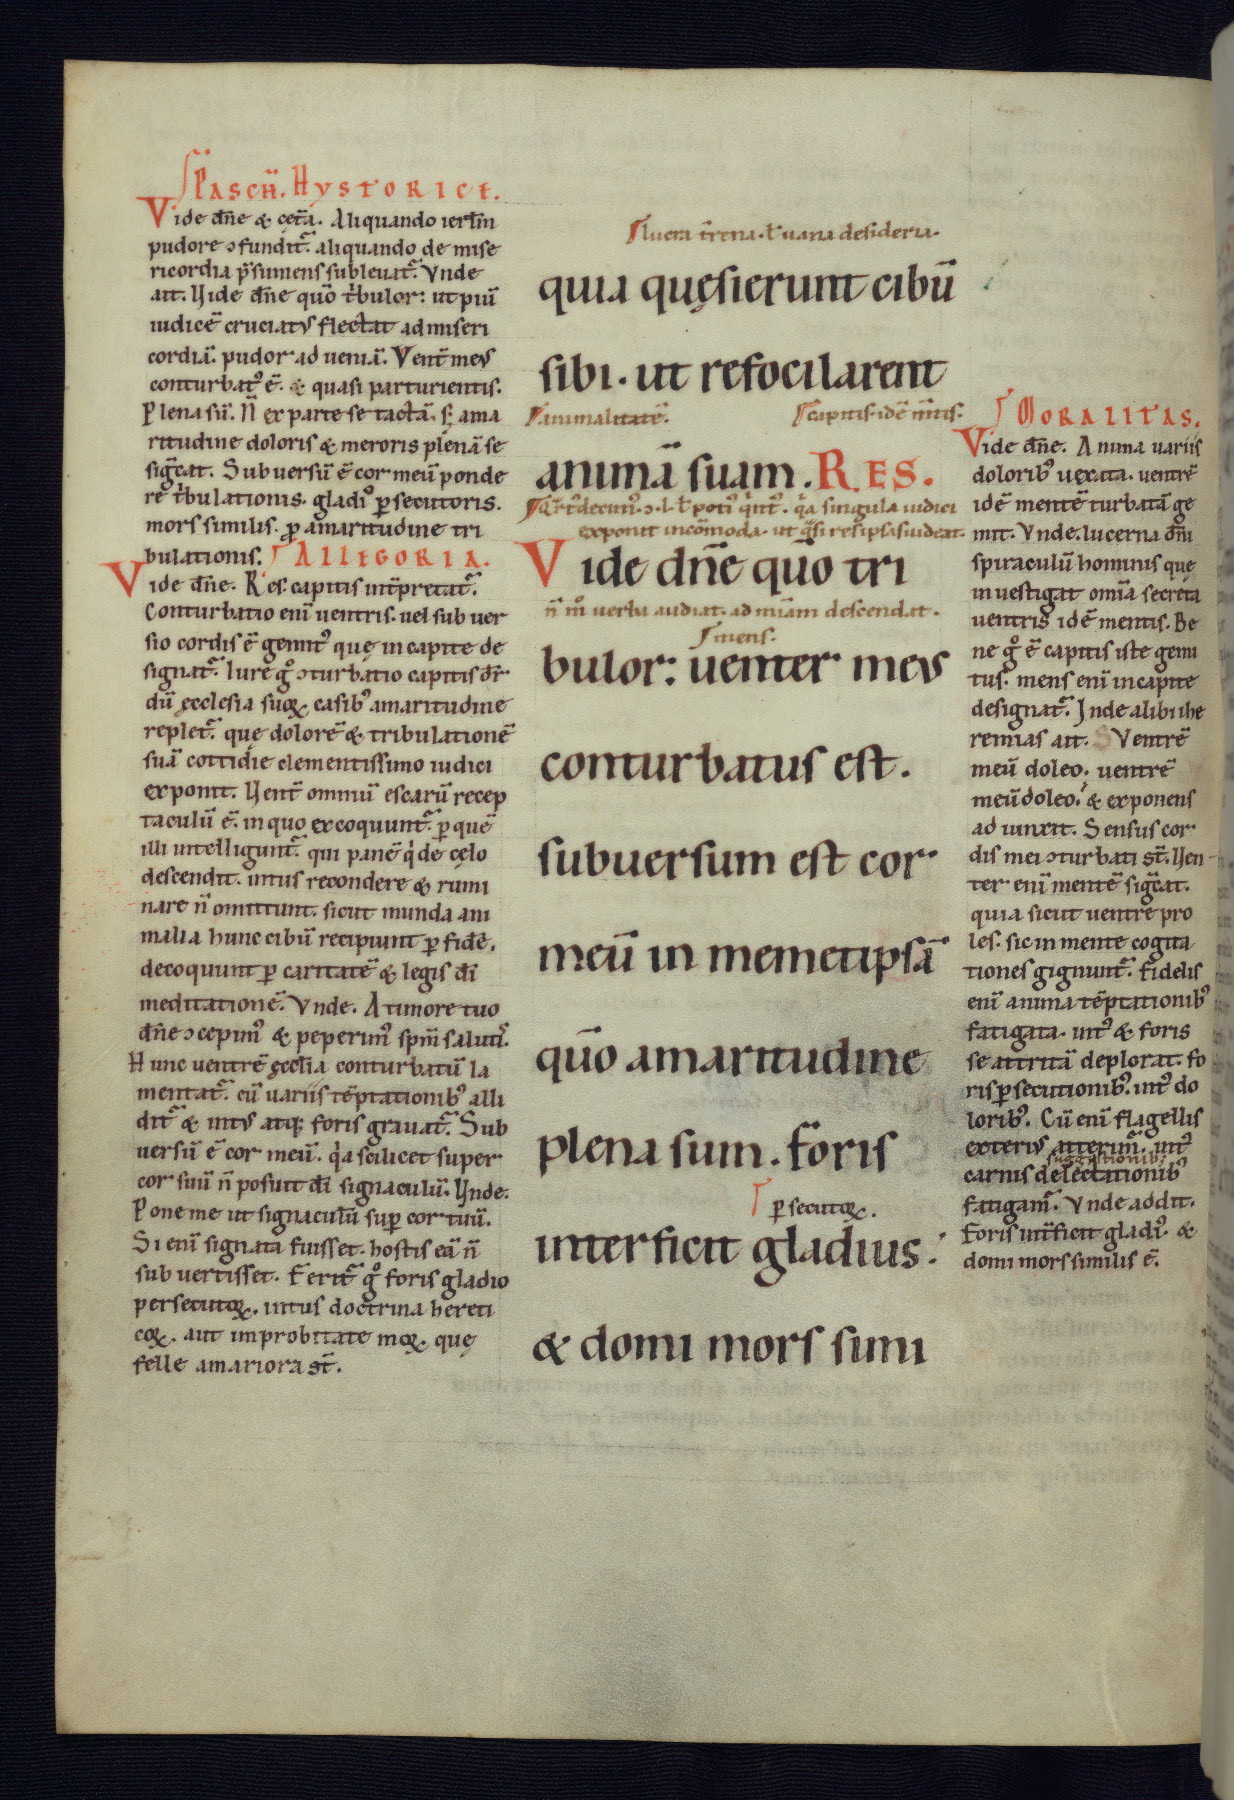 PASCH̄. HYSTORICE.
Vide dn̄e & cęt̄a. Aliquando ierl̄m
pudore ↄfundit᷑. aliquando de mise
ricordia p̄sumens subleuat᷑. Vnde
ait. Vide dn̄e quō t̄bulor: ut piū
iudicē cruciatus flectat ad miseri
cordiā. pudor ad ueniā. Vent̄ meus
conturbat᷒ ē. & quasi parturientis.
Plena sū. N̄ ex parte se tactā. s; ama
ritudine doloris & meroris plenā se
sigc̄at. Subuersū ē cor meū ponde
rē t̄bulationis. gladi᷒ ꝑsecutoris.
mors similis. ꝓ amaritudine tri
bulationis. ALLEGORIA.
Vide dn̄e. Res capitis int̄pretat᷑.
Conturbatio enī uentris. uel subuer
sio cordis ē gemit᷒ quę in capite de
signat᷑. Iure gͦ ↄturbatio capitis dr̄
dū ęcclesia suoꝝ casib᷒ amaritudine
replet᷑. que dolorē & tribulationē
suā cottidie clementissimo iudici
exponit. Vent̄ omniū escarū recep
taculū ē. in quo excoquunt᷑. ꝑ quē
illi intelligunt᷑. qui panē qͥ de cęlo
descendit. intus recondere & rumi
nare n̄ omittunt. sicut munda ani
malia hunc cibū recipiunt ꝑ fidē.
decoquunt ꝑ caritatē & legis dī
meditationē. Vnde. A timore tuo
dn̄e ↄcepim᷒ & peperim᷒ spm̄ salut᷒.
Hunc uentrē ęccl̄ia conturbatū la
mentat᷑. cū uariis tēptationib᷒ alli
dit᷑ & intus atq; foris grauat᷑. Sub
uersū ē cor meū. qͥa scilicet super
cor suū n̄ posuit dī signaculū. Vnde.
Pone me ut signaculū suꝑ cor tuū.
Si enī signata fuisset. hostis eā n̄
subuertisset. Ferit᷑ gͦ foris gladio
persecutoꝝ. intus doctrina hereti
coꝝ. aut improbitate moꝝ. quę
felle amariora st̄.
lucra t̄rena. ł uana desideria.
quia quęsierunt cibū
sibi. ut refocilarent
animalitatē.
capitis. idē m̄tis.
animā suam. RES.
exponit incōmoda. ut qͣsi res ipsas uideat.
Vide dn̄e quō tri
n̄ m̊ uerba audiat. ad miām descendat.
mens.
bulor: uenter meus
conturbatus est.
subuersum est cor
meū in memetipsā
quō amaritudine
plena sum. foris
ꝑsecutoꝝ.
interficit gladius:
& domi mors simi
MORALITAS.
Vide dn̄e. Anima uariis
dolorib᷒ uexata. uentrē
idē mentē turbatā ge
mit. Vnde. lucerna dn̄i
spiraculū hominis que
inuestigat omīa secreta
uentris idē mentis. Be
ne gͦ ē capitis iste gemi
tus. mens enī in capite
designat᷑. Inde alibi ihe
remias ait. Ventrē
meū doleo. uentrē
meū doleo. & exponens
adiunxit. Sensus cor
dis mei ↄturbati st̄. Ven
ter enī mentē sigc̄at.
quia sicut uentre pro
les. sic in mente cogita
tiones gignunt᷑. Fidelis
enī anima tēptationib᷒
fatigata. int᷒ & foris
se attritā deplorat. fo
ris ꝑsecutionib᷒. int᷒ do
lorib᷒. Cū enī flagellis
exterius atterim᷑. int᷒
suggestionib;
carnis delectationib᷒
fatigam᷑. Vnde addit.
Foris int̄ficit gladi᷒. &
domi mors similis ē.